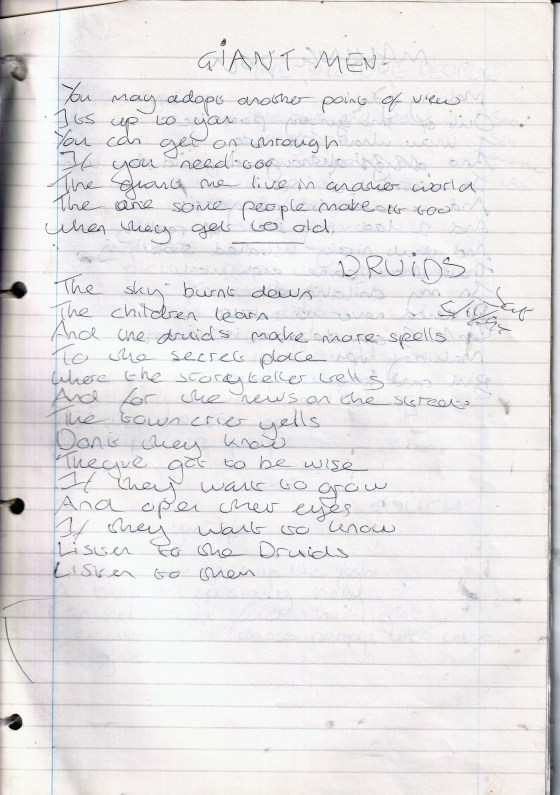 GIANT MEN
You may adopt another point of view
Its up to you
You can get on through
If you need too
The giants live in another world
The are some people make it too
when they get to old.
DRUIDS
The sky burnt down
The children learn
And the druids make more spells
To the secret place
where the storeyteller tells
And for the news on the streets
The town crier yells
Dont they know
Theyve got to be wise
If they want to grow
And open their eyes
If they want to know
Listen to the Druids
Listen to them